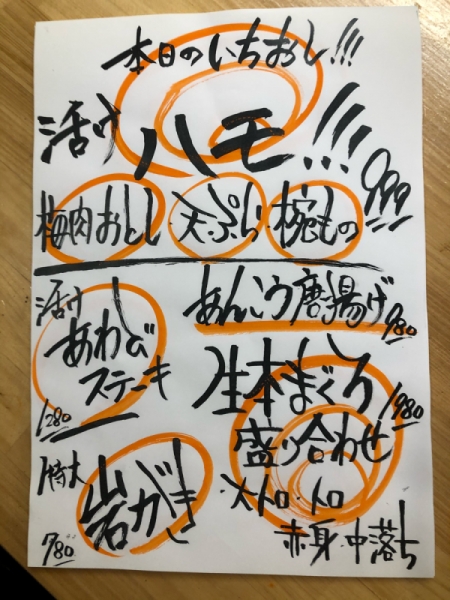 本日のいちおし!!!
活け
ハモ!!!
梅肉おとし・天ぷら・椀もの 999
活け
あわび
ステーキ
1280
あんこう唐揚げ 980
生本まぐろ
盛り合わせ 1980
・大トロ・トロ
赤身・中落ち
特大
岩がき
780